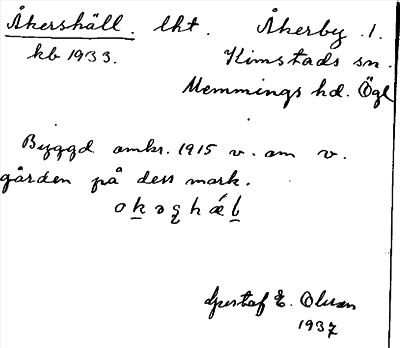 Åkershäll. lht. Åkerby 1.
kb 1933. Kimstads sn.
Memmings hd. Ögl
Byggd omkr. 1915 v. om v.
gården på dess mark.
Gustaf E. Olsson
1937